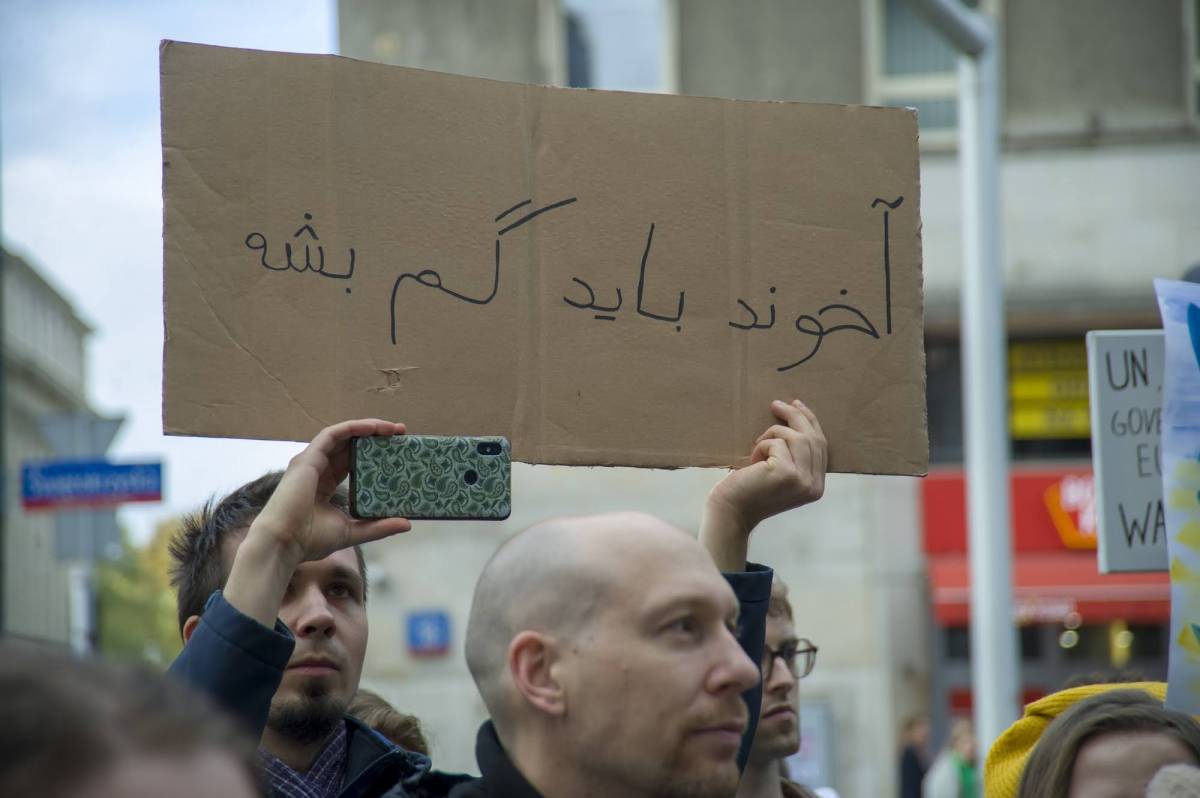 آخوند باید گم بشه
UN
GOVE
EU
WA